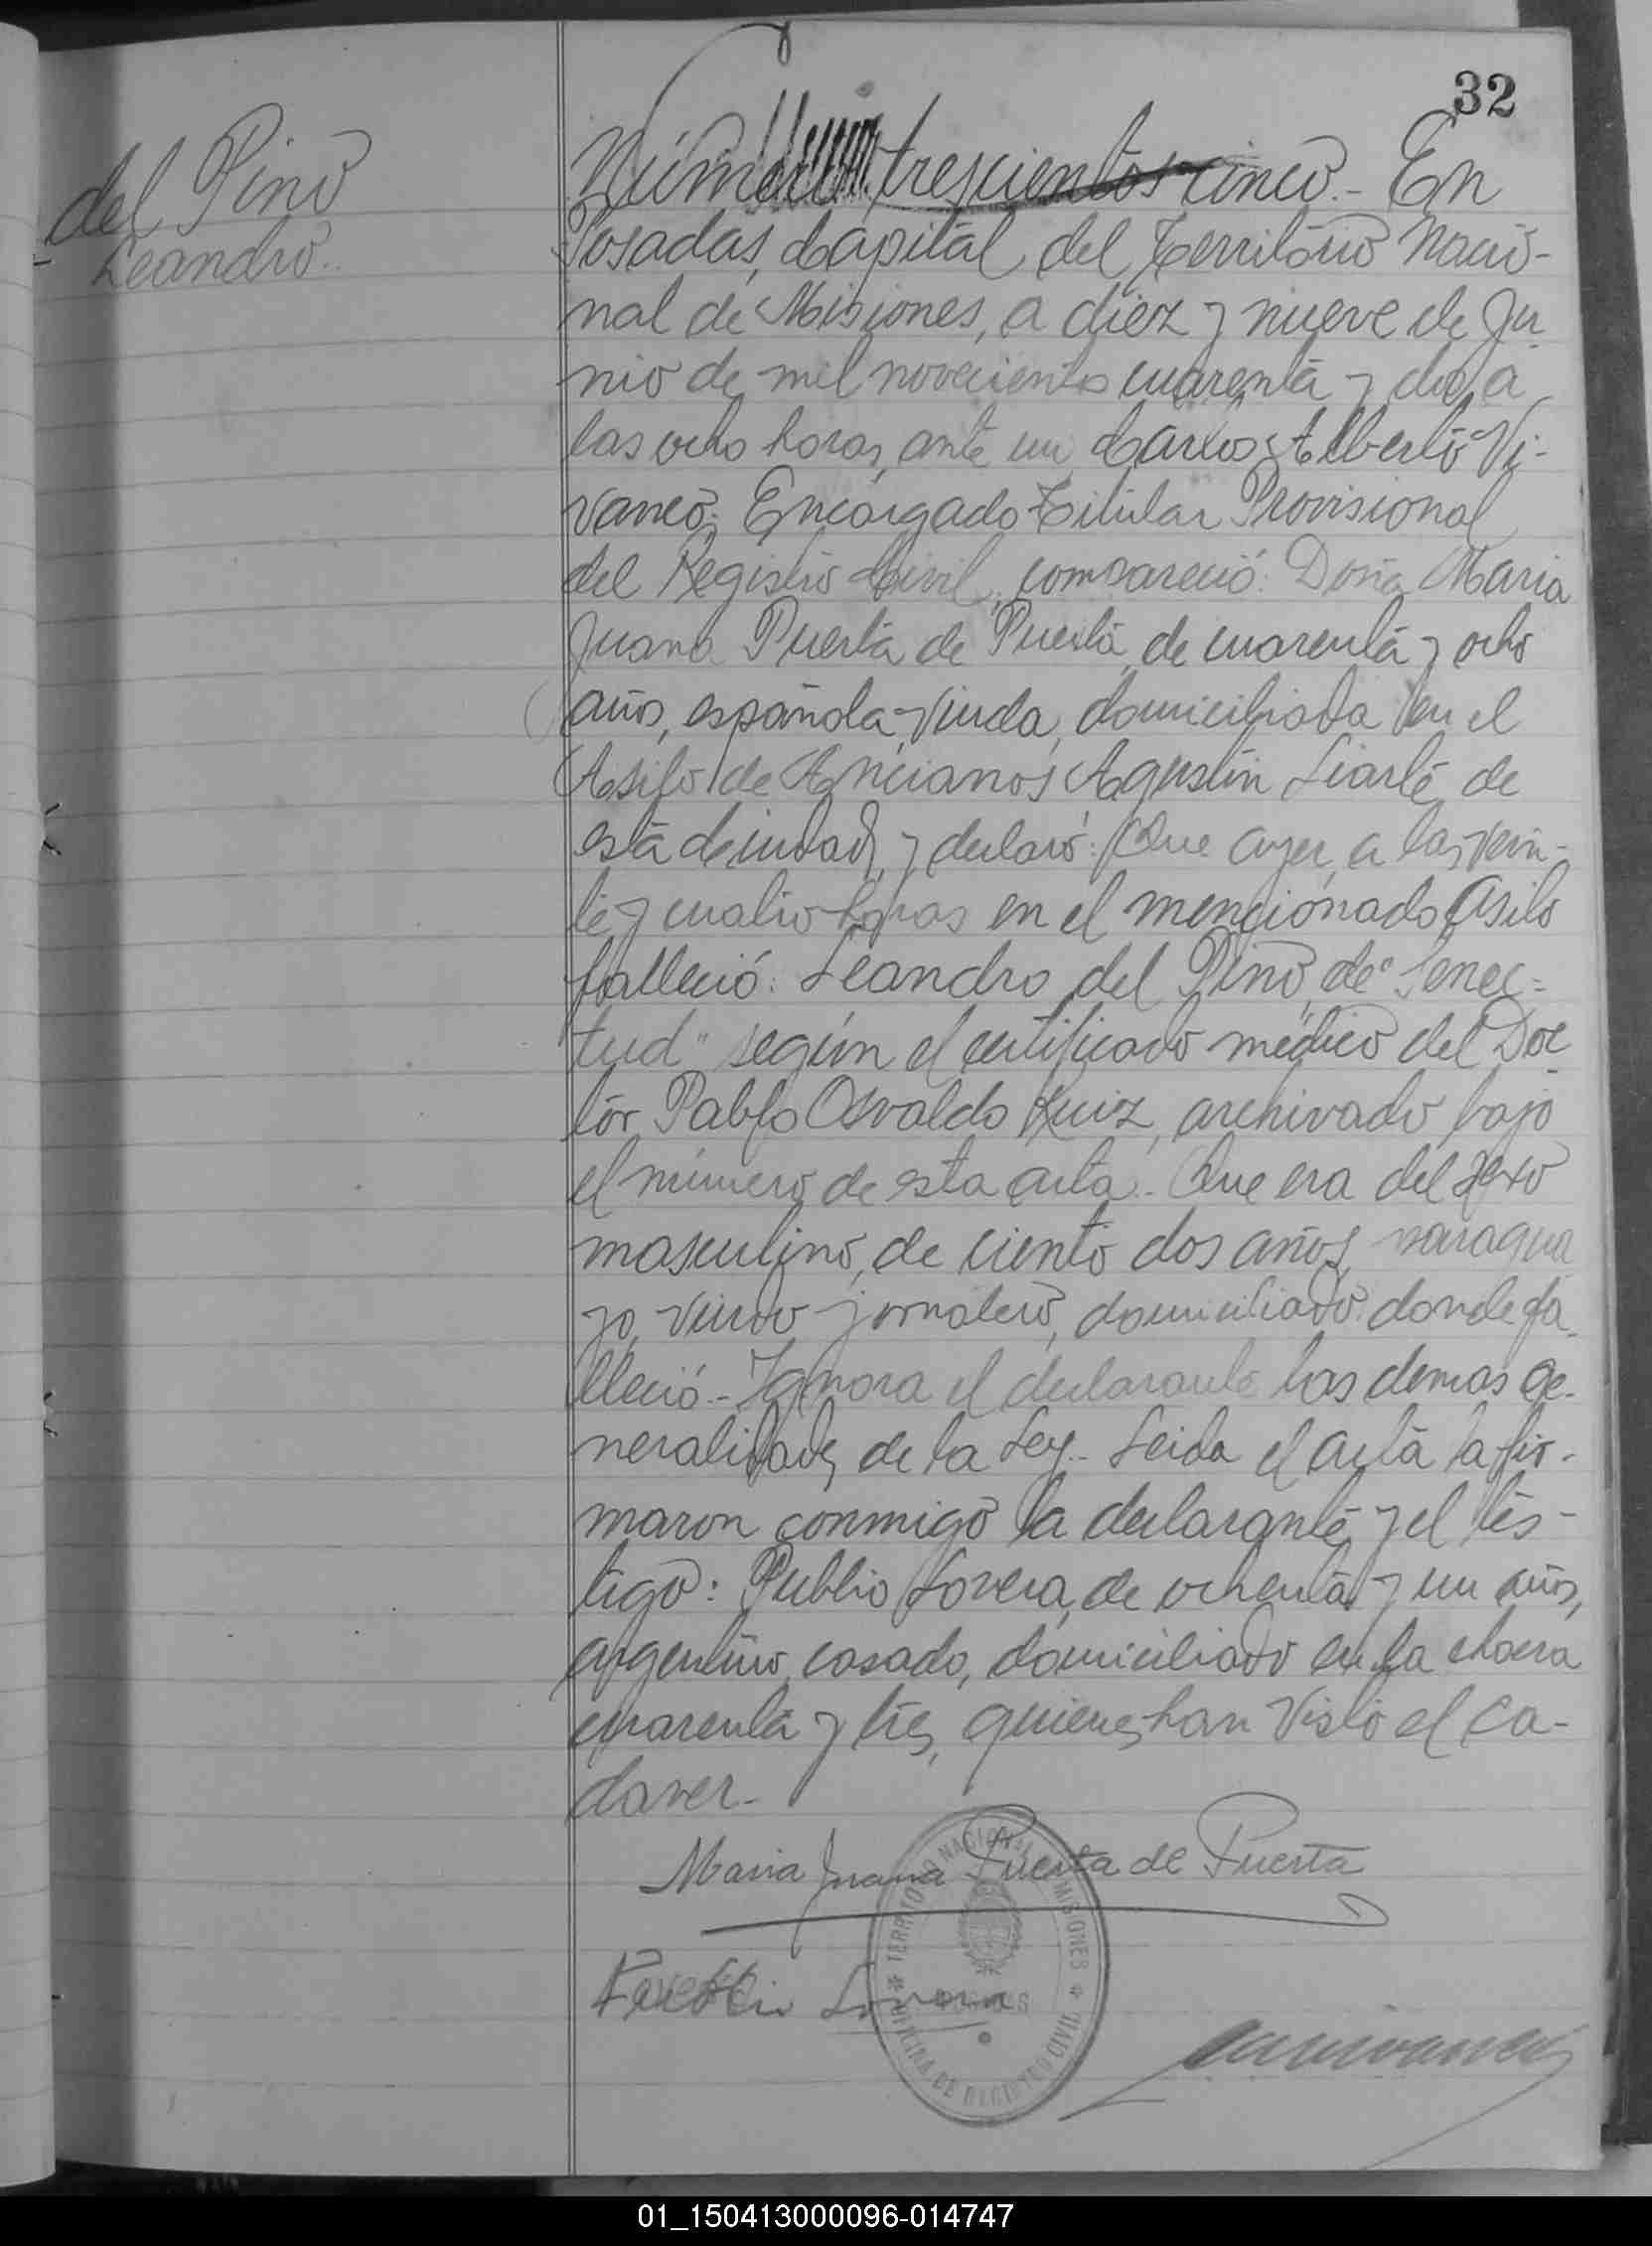 32
del Pino
Leandro..
Número trescientos cinco.- En
Posadas, Capital del Territorio Nacio-
nal de Misiones, a diez y nueve de Ju
nio de mil novecientos cuarenta y dos a
las ocho horas, ante mi Carlos Alberto Vi-
vanco, Encargado Titular Provisional
del Registro Civil, compareció: Doña Maria
Juana Puerta de Puerta, de cuarenta y ocho
años, española, viuda, domiciliada en el
Asilo de Ancianos Agustin Liarte de
esta Ciudad, y declaró: Que ayer, a las vein-
te y cuatro horas en el mencionado Asilo
falleció: Leandro del Pino, de "Senec=
tud" según el certificado médico del Doc
tor Pablo Osvaldo Ruiz, archivado bajo
el número de esta acta.- Que era del sexo
masculino, de ciento dos años, paragua
yo, viudo, jornalero, domiciliado donde fa_
lleció.- Ignora el declarante las demas ge-
neralidades de la Ley.- Leida el acta la fir-
maron conmigo la declarante, y el tes-
tigo: Publio Lovera, de ochenta y un años,
argentino, casado, domiciliado en la chacra
cuarenta y tres, quienes han visto el ca-
daver-
Maria Juana Puerta de Puerta
Lovera
TERRITORIO NACIONAL MISIONES
OFICINA DE REGISTRO CIVIL
01_150413000096-014747